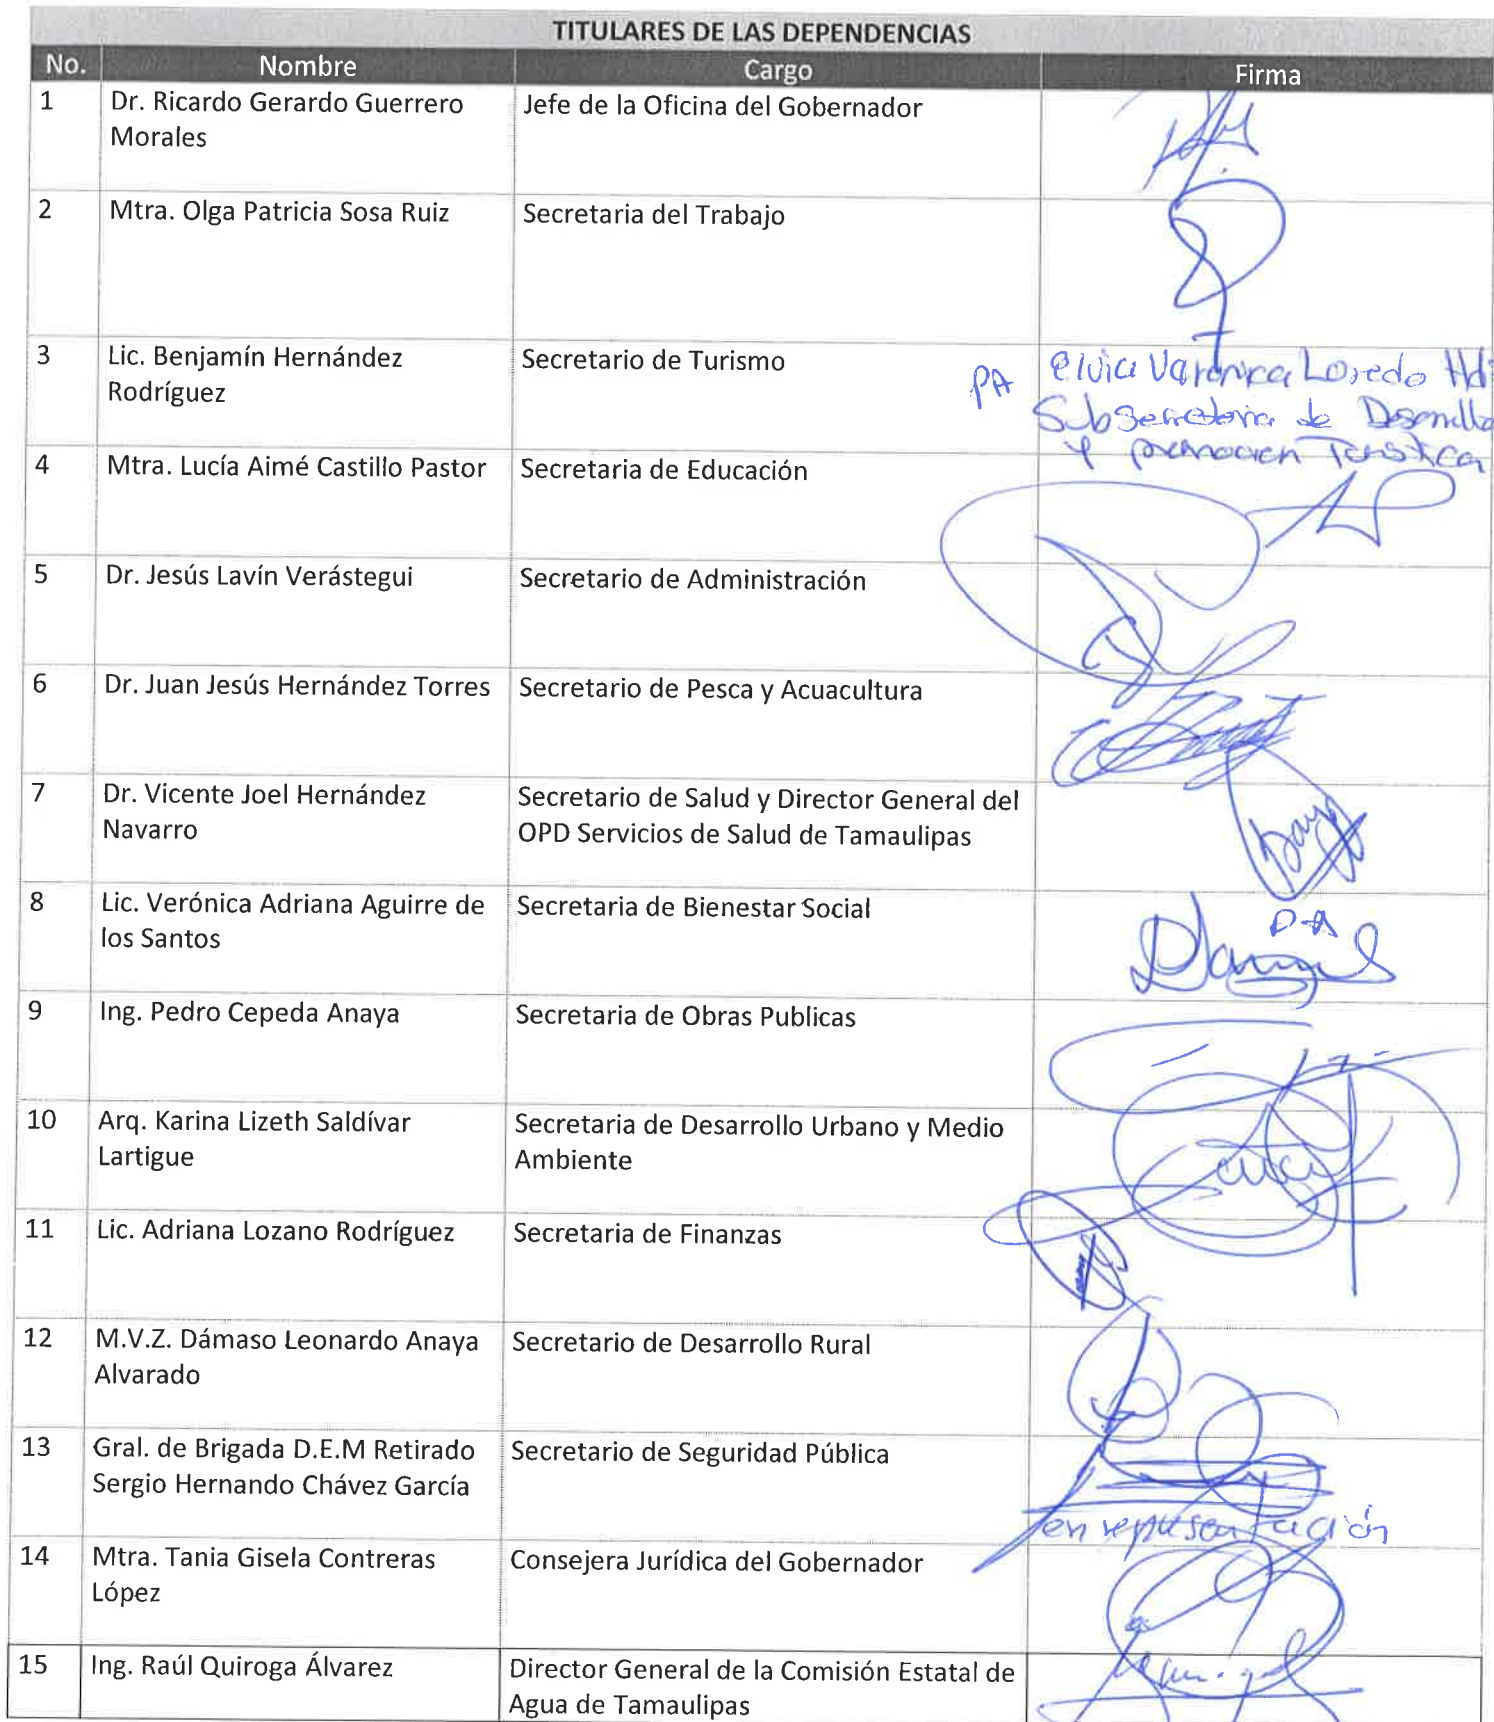 TITULARES DE LAS DEPENDENCIAS
No. Nombre Cargo Firma
1 Dr. Ricardo Gerardo Guerrero Jefe de la Oficina del Gobernador
Morales
2 Mtra. Olga Patricia Sosa Ruiz Secretaria del Trabajo
3 Lic. Benjamín Hernández Secretario de Turismo PA Elvia Veronica Loredo Hdz
Rodríguez Subsecretaria de Desarrollo
y promocion Turistica
4 Mtra. Lucía Aimé Castillo Pastor Secretaria de Educación
5 Dr. Jesús Lavín Verástegui Secretario de Administración
6 Dr. Juan Jesús Hernández Torres Secretario de Pesca y Acuacultura
7 Dr. Vicente Joel Hernández Secretario de Salud y Director General del
Navarro OPD Servicios de Salud de Tamaulipas
8 Lic. Verónica Adriana Aguirre de Secretaria de Bienestar Social P.A
los Santos
9 Ing. Pedro Cepeda Anaya Secretaria de Obras Publicas
10 Arq. Karina Lizeth Saldívar Secretaria de Desarrollo Urbano y Medio
Lartigue Ambiente
11 Lic. Adriana Lozano Rodríguez Secretaria de Finanzas
12 M.V.Z. Dámaso Leonardo Anaya Secretario de Desarrollo Rural
Alvarado
13 Gral. de Brigada D.E.M Retirado Secretario de Seguridad Pública
Sergio Hernando Chávez García
en representación
14 Mtra. Tania Gisela Contreras Consejera Jurídica del Gobernador
López
15 Ing. Raúl Quiroga Álvarez Director General de la Comisión Estatal de
Agua de Tamaulipas